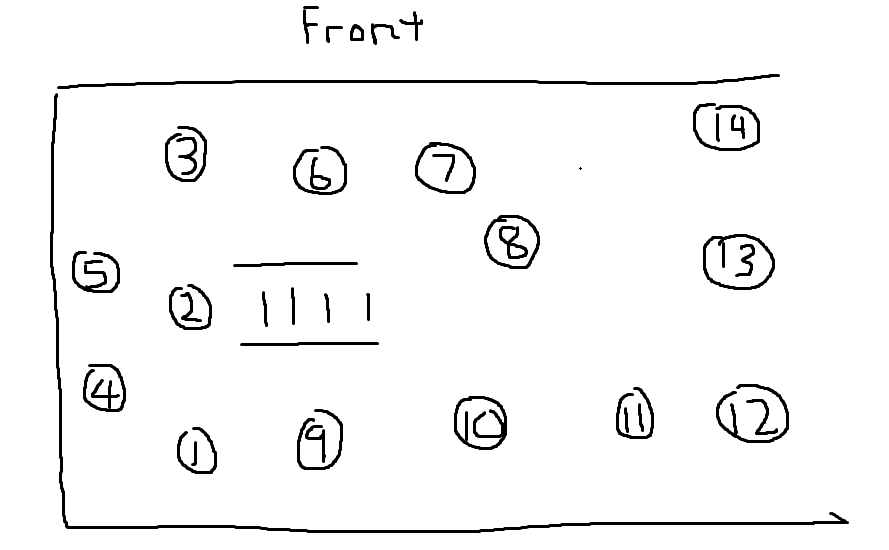 Front
14
3 6 7
8
5 13
2 | | | |
4
1 9 10 11 12